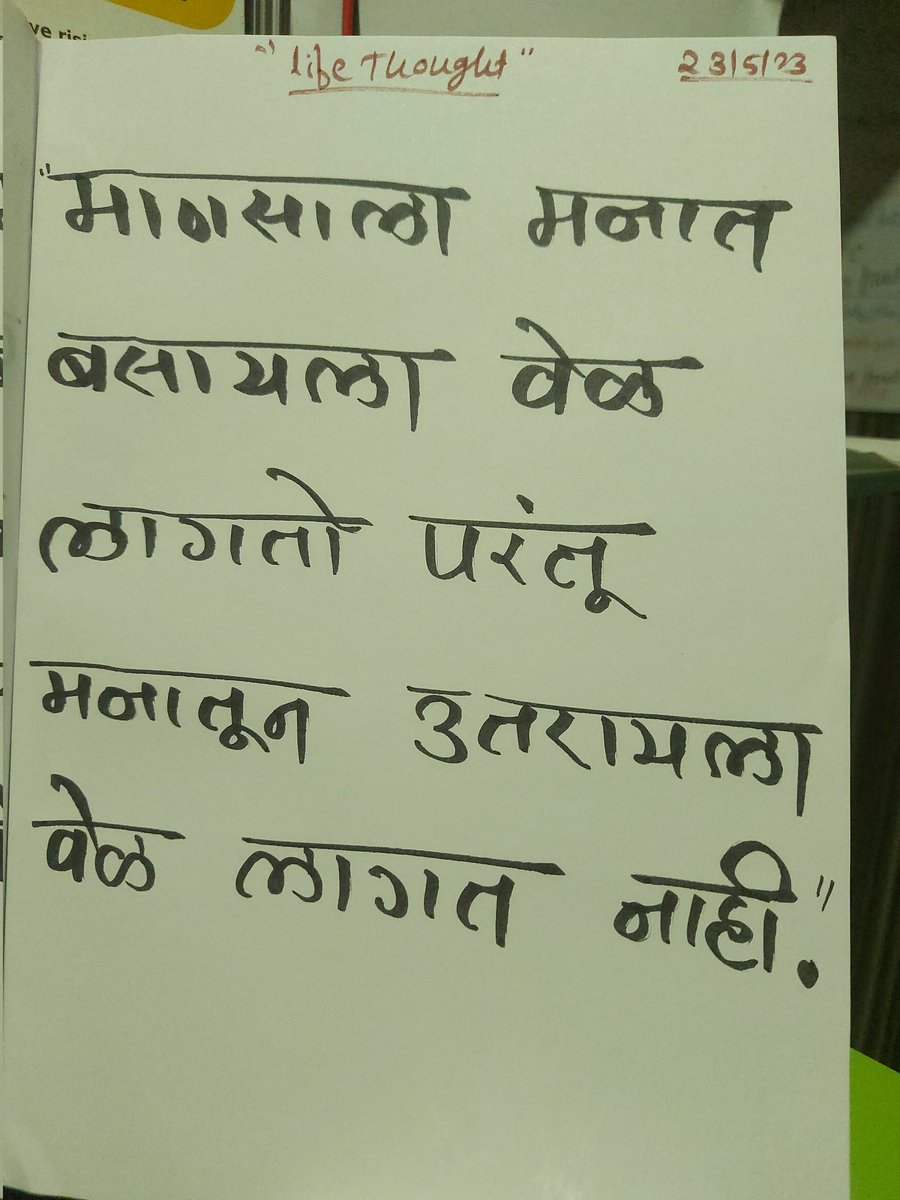 ve risi
"life Thought" 23/5/23
"माणसाला मनात
बसायला वेळ
लागतो परंतू
मनातून उतरायला
वेळ लागत नाही."